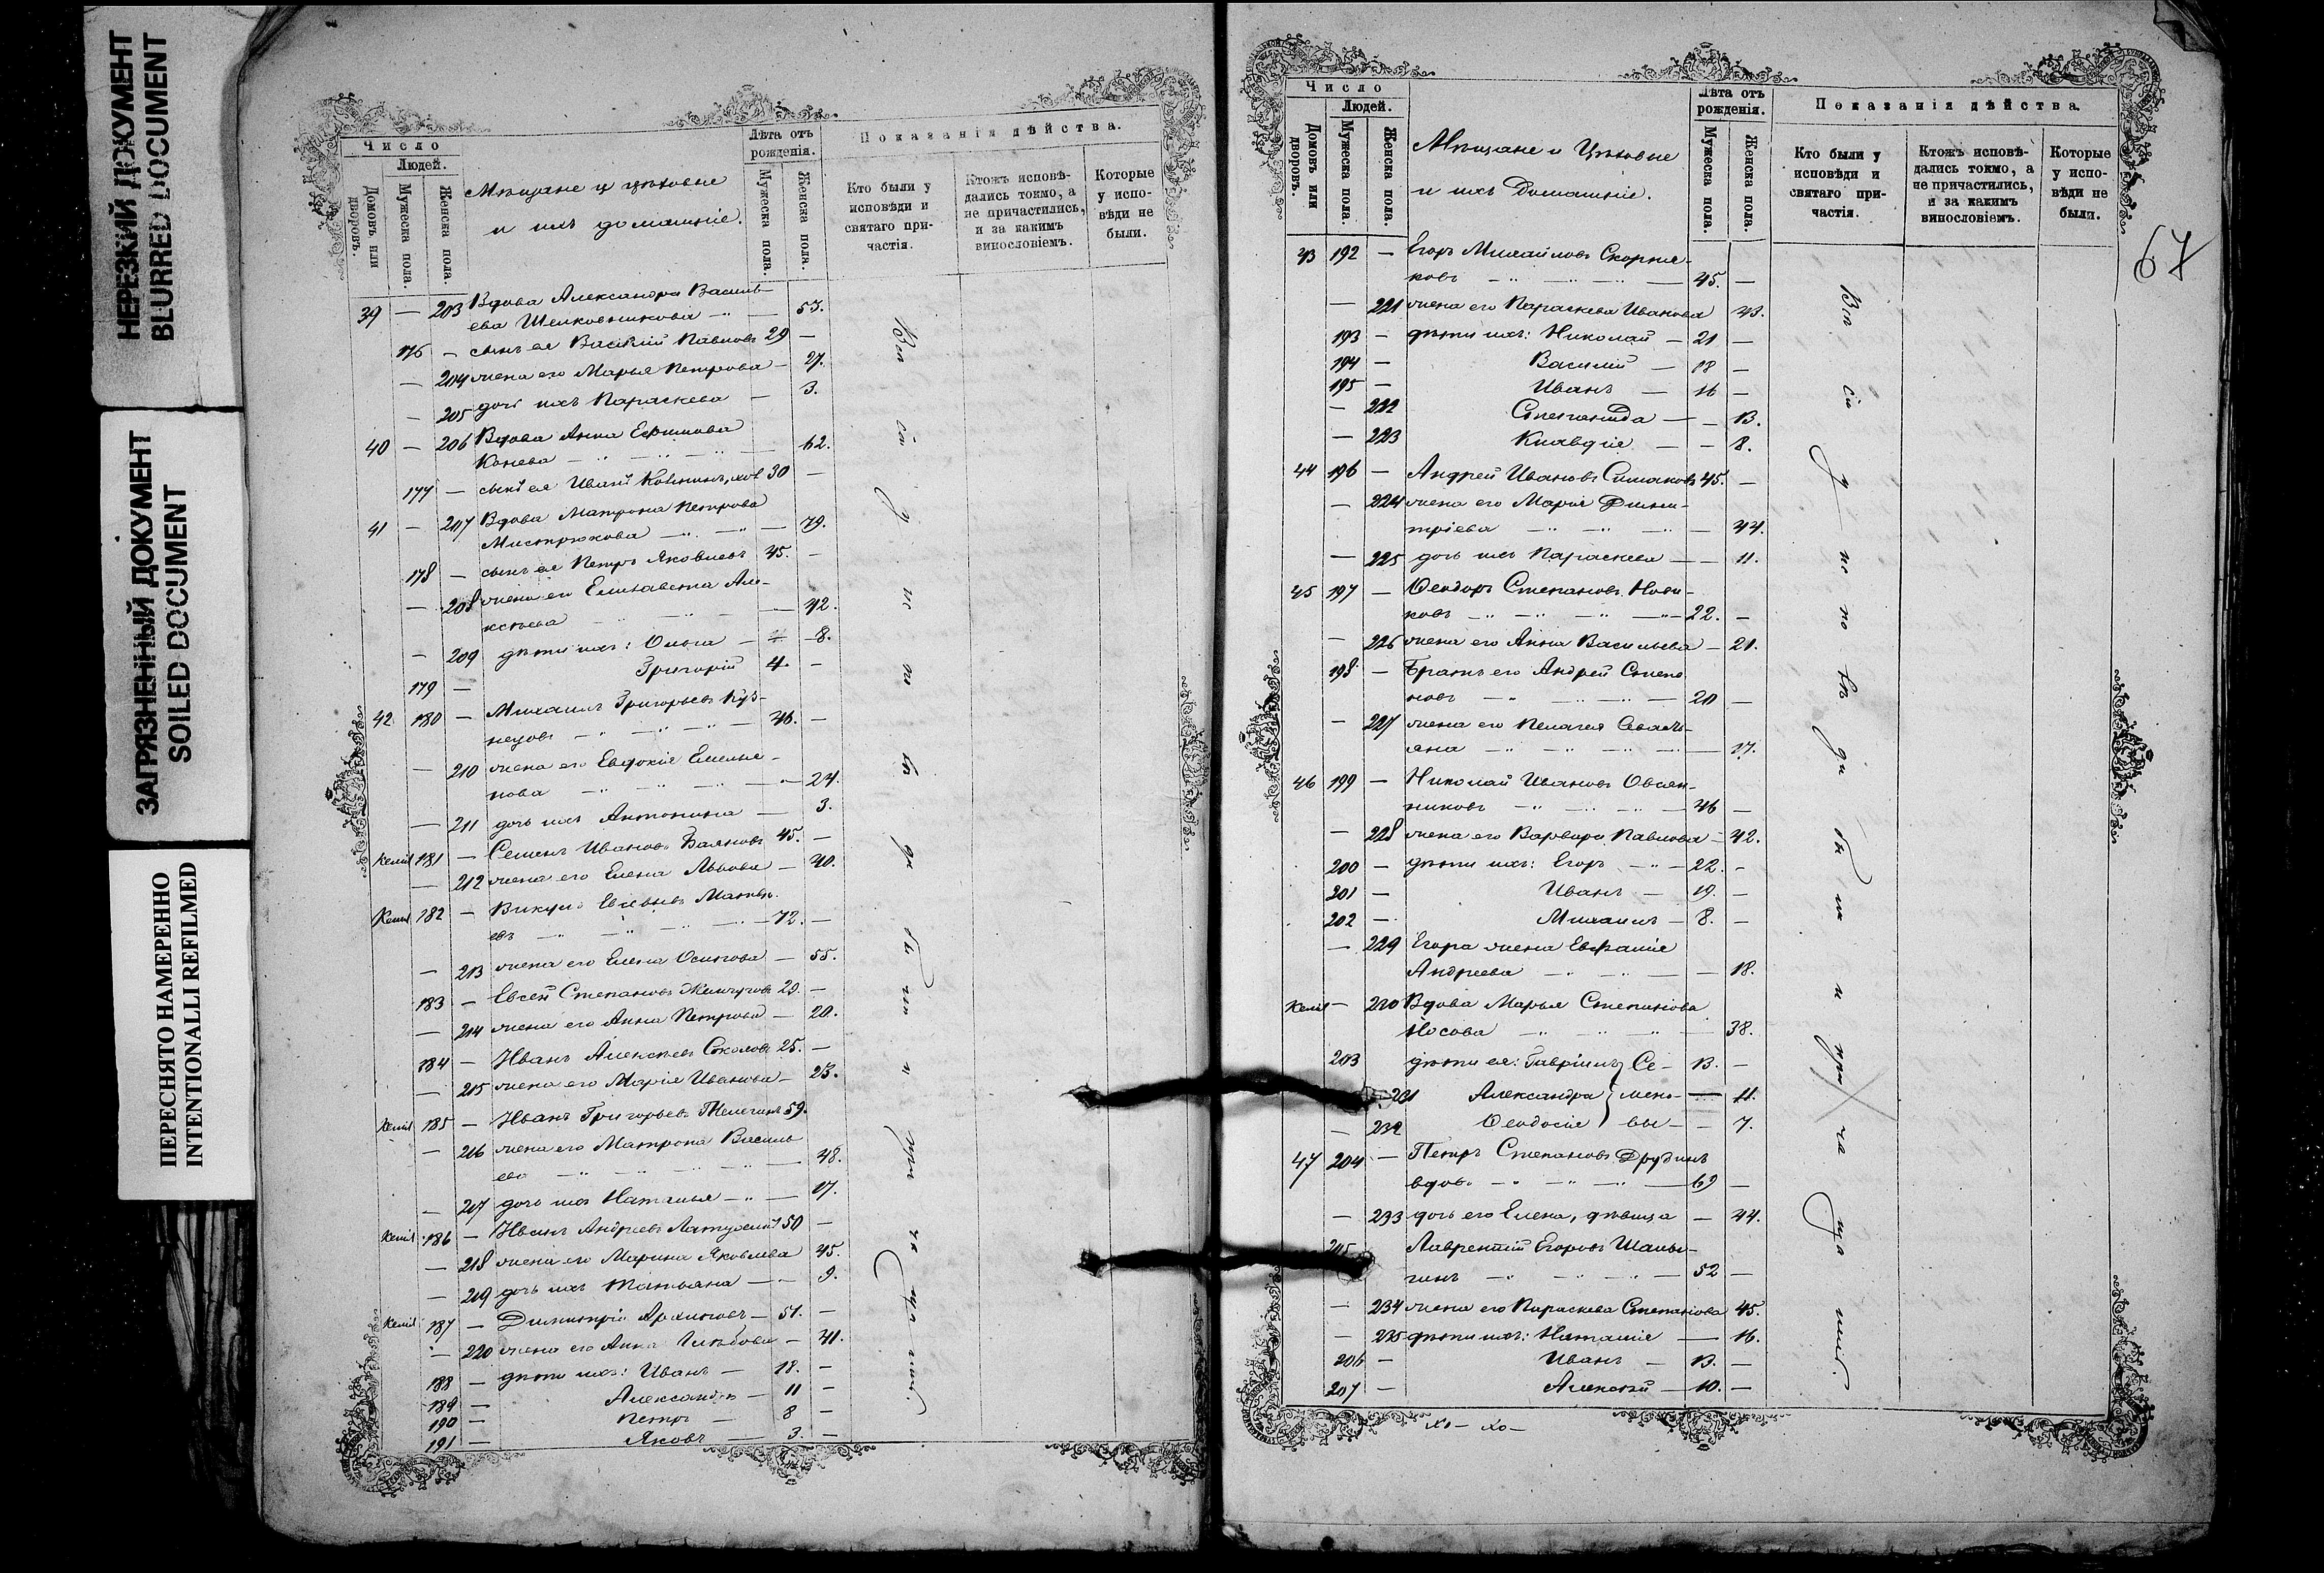 НЕРЕЗКИЙ ДОКУМЕНТ
BLURRED DOCUMENT
ЗАГРЯЗНЕННЫЙ ДОКУМЕНТ
SOILED DOCUMENT
ПЕРЕСНЯТО НАМЕРЕННО
INTENTIONALLI REFILMED
Число
Людей.
Домовъ или дворовъ.
Мужеска пола.
Женска пола.
Мѣщане и цѣховые
и ихъ домашніе.
Лѣта отъ рожденія.
Мужеска пола.
Женска пола.
Показанія дѣйства.
Кто были у исповѣди и святаго причастія.
Ктожъ исповѣдались токмо, а не причастились, и за какимъ винословіемъ.
Которые у исповѣди не были.
39 — 203 Вдова Александра Василь-
ева Шелковникова — 53.
176 — сынъ ея Василій Павловъ 29 —
— 204 жена его Марья Петрова — 27.
— 205 дочь ихъ Параскева — 3.
40 — 206 Вдова Анна Ефимова
Конева — 62.
177 — сынъ ея Иванъ 30 —
41 — 207 Вдова Матрона Петрова
Мистрюкова — 79.
178 — сынъ ея Петръ Яковлевъ 45. —
— 208 жена его Елисавета Але-
ксѣева — 42.
— 209 дѣти ихъ: Ольга — 8.
179 — Григорій 4. —
42 180 — Михаилъ Григорьевъ Куз-
нецовъ — 46. —
— 210 жена его Евдокія Емелья-
нова — 24.
— 211 дочь ихъ Антонина — 3.
181 — Семенъ Ивановъ Баяновъ 45. —
— 212 жена его Елена Львова — 40.
182 — Викулъ Матвѣ-
евъ — 72. —
— 213 жена его Елена Осипова — 55.
183 — Евсей Степановъ Жемчуговъ 29. —
— 214 жена его Анна Петрова — 20.
184 — Иванъ Алексѣевъ Соколовъ 25. —
— 215 жена его Марія Иванова — 23.
185 — Иванъ Григорьевъ Телегинъ 59.
— 216 жена его Матрона Василь
ева — 48.
— 217 дочь ихъ Наталья — 17.
186 — Иванъ Андреевъ 50 —
— 218 жена его Марина Яковлева 45.
— 219 дочь ихъ Татьяна — 9.
187 — Димитрій Архиповъ — 51. —
— 220 жена его Анна Глѣбова — 41.
188 — дѣти ихъ: Иванъ — 18. —
189 — Александръ — 11 —
190 — Петръ — 8 —
191 — Яковъ — 3. —
Всѣ сіи у исповѣди были и причащались.
Число
Людей.
Домовъ или дворовъ.
Мужеска пола.
Женска пола.
Мѣщане и Цѣховые
и ихъ Домашніе.
Лѣта отъ рожденія.
Мужеска пола.
Женска пола.
Показанія дѣйства.
Кто были у исповѣди и святаго причастія.
Ктожъ исповѣдались токмо, а не причастились, и за какимъ винословіемъ.
Которые у исповѣди не были.
67
43 192 — Егоръ Михайловъ Скорня-
ковъ — 45. —
— 221 жена его Параскева Иванова 43.
193 — дѣти ихъ: Николай — 21 —
194 — Василій — 18 —
195 — Иванъ — 16 —
— 222 Степанида — — 13.
— 223 Клавдія — — 8.
44 196 — Андрей Ивановъ Симаковъ 45. —
— 224 жена его Марія Дими-
тріева — 44.
— 225 дочь ихъ Параскева — — 11.
45 197 — Ѳеодоръ Степановъ Нови-
ковъ — 22. —
— 226 жена его Анна Васильева — 21.
198 — Братъ его Андрей Степа
новъ — 20 —
— 227 жена его Пелагея Севасть-
яна — 17.
46 199 — Николай Ивановъ Овсян-
никовъ — 46 —
— 228 жена его Варвара Павлова — 42.
200 — дѣти ихъ: Егоръ — 22. —
201 — Иванъ — 19. —
202 — Михаилъ — 8. —
— 229 Егора жена Евфалія
Андреева — 18.
— 230 Вдова Марья Степанова
Носова — 38.
203 дѣти ея: Гавріилъ } Се- 13. —
— 231 Александра } мено- — 11.
— 232 Ѳеодосія } вы — — 7.
47 204 — Петръ Степановъ Друдинъ
вдовъ — 69 —
— 233 дочь его Елена, дѣвица — 44.
205 Лаврентій Егоровъ Шалы-
гинъ — 52 —
— 234 жена его Параскева Степанова 45.
— 235 дѣти ихъ: Наталія — 16.
206 — Иванъ — 13. —
207 — Алексѣй — 10. —
Всѣ сіи у исповѣди были и причащались.